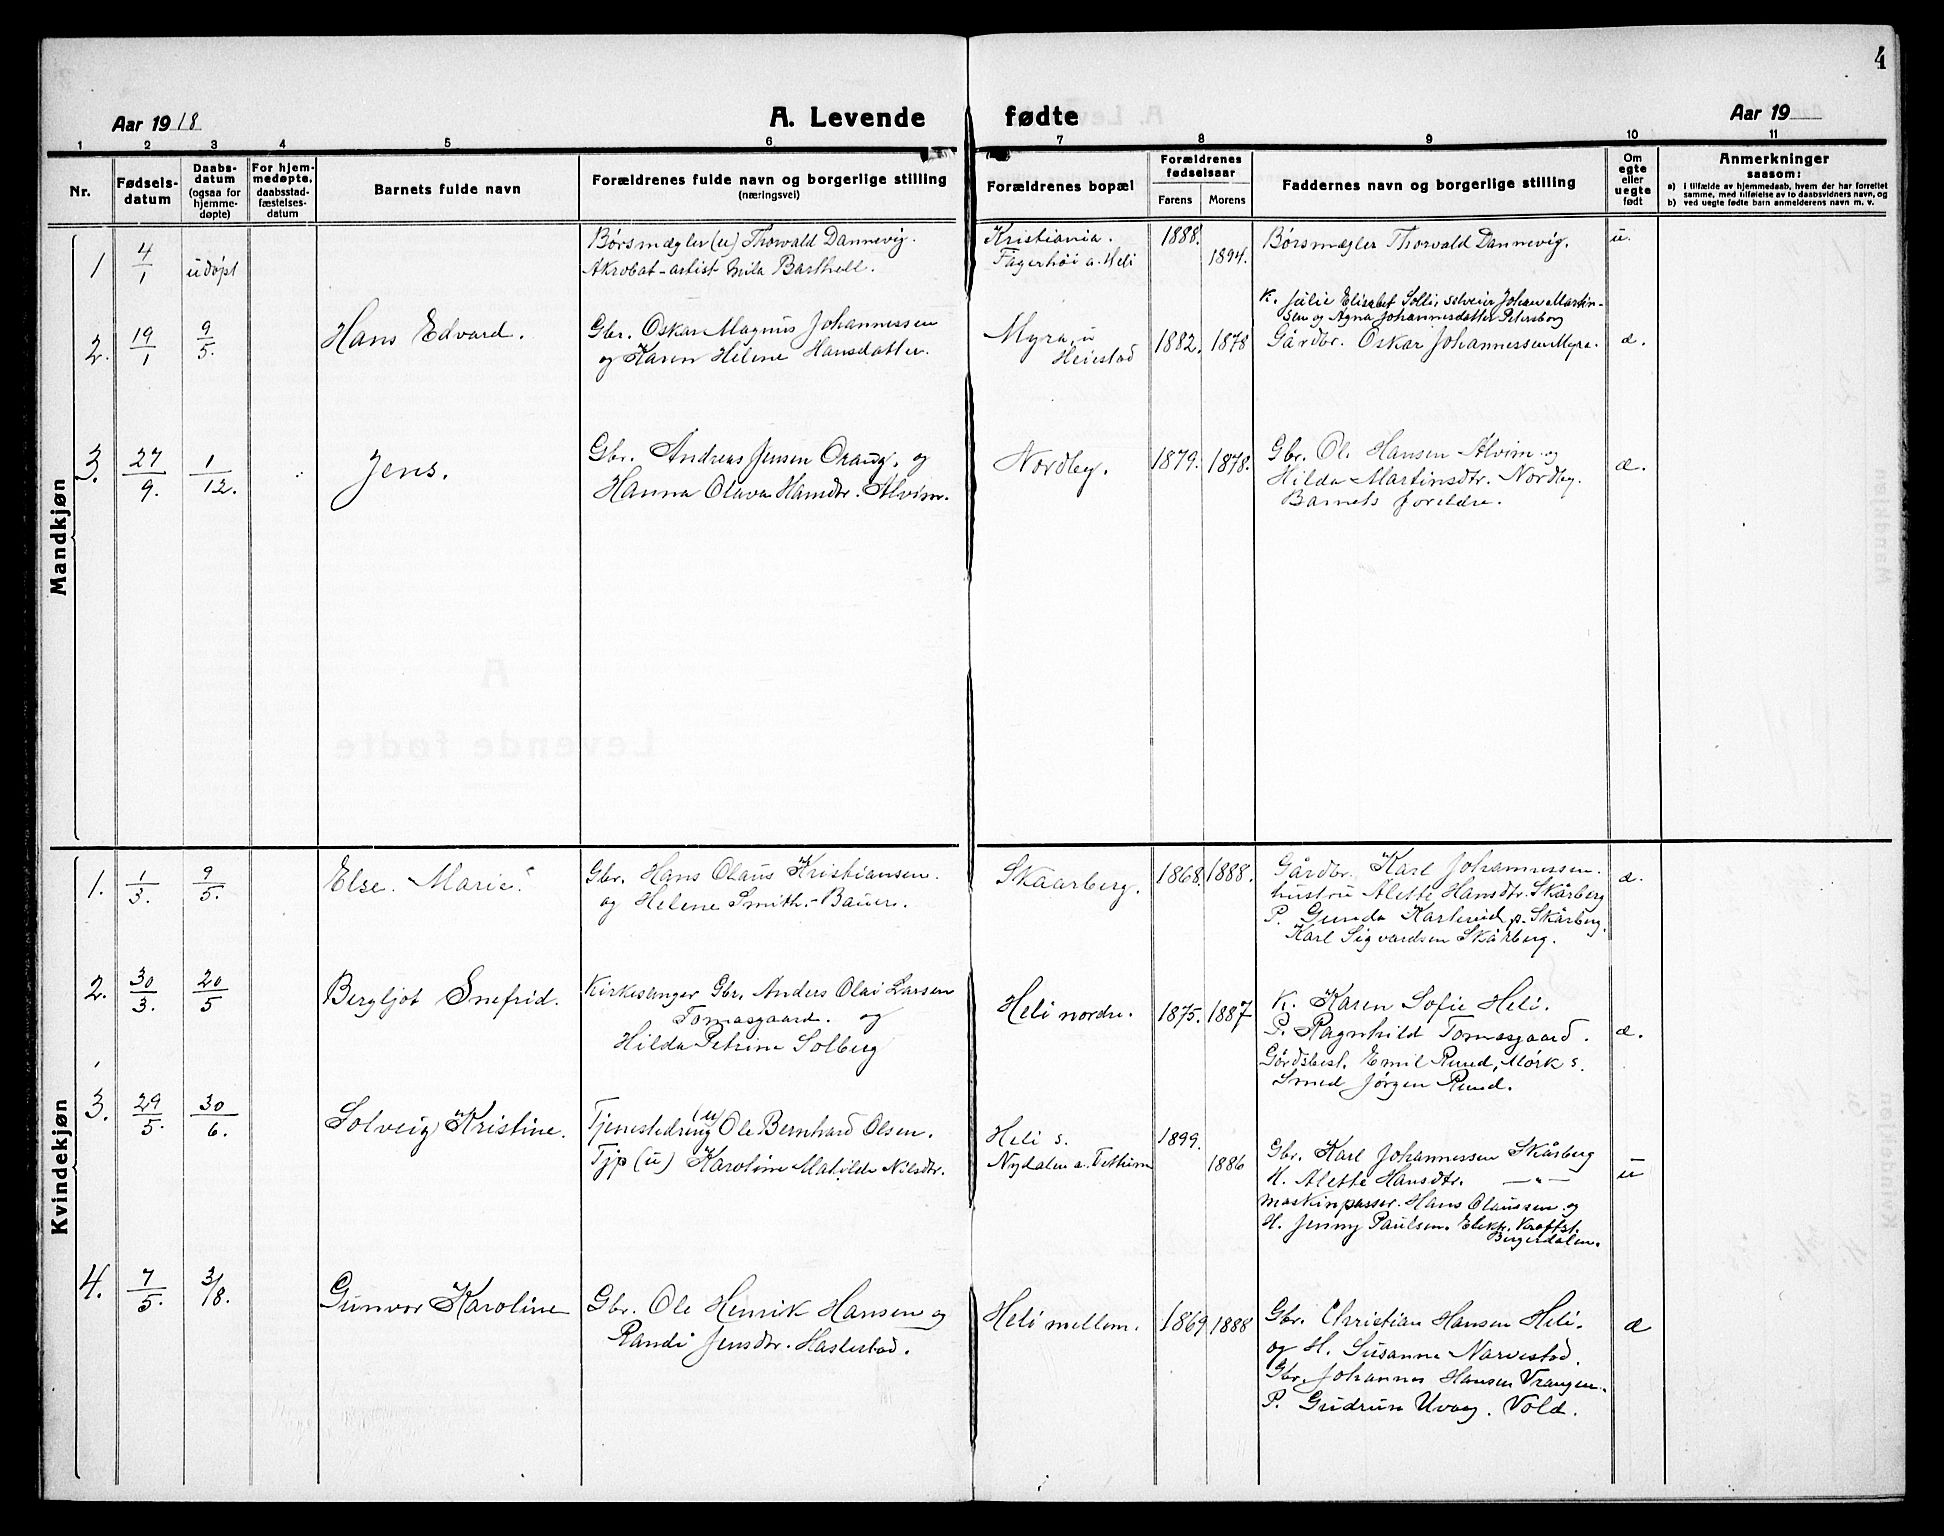 4
Aar 1918
A. Levende fødte
Aar 19
1 2 3 4 5 6 7 8 9 10 11
Nr.
Fødselsdatum
Daabsdatum (ogsaa for hjemmedøpte)
For hjemmedøpte, daabsstadfæstelsesdatum
Barnets fulde navn
Forældrenes fulde navn og borgerlige stilling (næringsvei)
Forældrenes bopæl
Forældrenes fødselsaar
Farens Morens
Faddernes navn og borgerlige stilling
Om egte eller uegte født
Anmerkninger saasom:
a) i tilfælde av hjemmedaab, hvem der har forrettet samme, med tilføielse av to daabsvidners navn, og
b) ved uegte fødte barn anmelderens navn m. v.
Mandkjøn
1 4/1 udøpt
Børsmægler (u) Thorvald Dannevig.
Akrobat-artist Mila Barthell.
Kristiania.
Fagerhøi a. Heli
1888.
1894.
Børsmægler Thorvald Dannevig.
u.
2. 19/1 9/5. Hans Edvard.
Gbr. Oskar Magnus Johannessen
og Karen Helene Hansdatter.
Myra, u
Heiestad
1882. 1878
K. Julie Elisabet Solli, selveier Johan Martin-
sen og Agna Johannesdatter Petersborg
Gårdbr. Oskar Johannessen Myra.
æ.
3. 27/9. 1/12. Jens.
Gbr. Andreas Jensen Oraug, og
Hanna Olava Hansdtr. Alvim.
Nordby.
1879. 1878.
Gbr. Ol. Hansen Alvim og
Hilda Martinsdtr. Nordby.
Barnets forældre.
æ.
Kvindekjøn
1. 1/3. 9/5. Else Marie.
Gbr. Hans Olaus Kristiansen.
og Helene Smith-Bauer.
Skaarberg.
1868. 1888.
Gårdbr. Karl Johannessen.
hustru Alette Hansdtr. Skårberg
P. Gunda p. Skårberg.
Karl Sigvardsen Skårberg.
æ.
2. 30/3. 20/5 Bergljot Snefrid.
Kirkesanger Gbr. Anders Olai Larsen
Tomasgaard. og
Hilda Petrine Solberg
Heli nordre.
1875. 1887
K. Karen Sofie Heli.
P. Ragnhild Tomasgaard.
Gårdsbest. Emil Rund, Mørk s.
Smed Jørgen Rund.
æ.
3. 29/5. 30/6. Solveig Kristine.
Tjenestedreng (u) Ole Bernhard Olsen.
Tjp (u) Karoline Matilde Nilsdtr.
Heli s.
Nydalen a. Tethum
1899.
1886
Gbr. Karl Johannessen Skårberg
H. Alette Hansdtr. —"—
maskinpasser. Hans Olaussen og
H. Jenny Paulsen. Elektr. Kraftst.
Birgerdalen.
u
4. 7/5. 3/8. Gunvor Karoline
Gbr. Ole Henrik Hansen og
Randi Jensdtr. Haslestad.
Heli mellem.
1869 1888
Gbr. Christian Hansen Heli.
og H. Susanna Narvestad.
Gbr. Johannes Hansen Vrangen.
P. Gudrun Uvaag. Vold.
æ